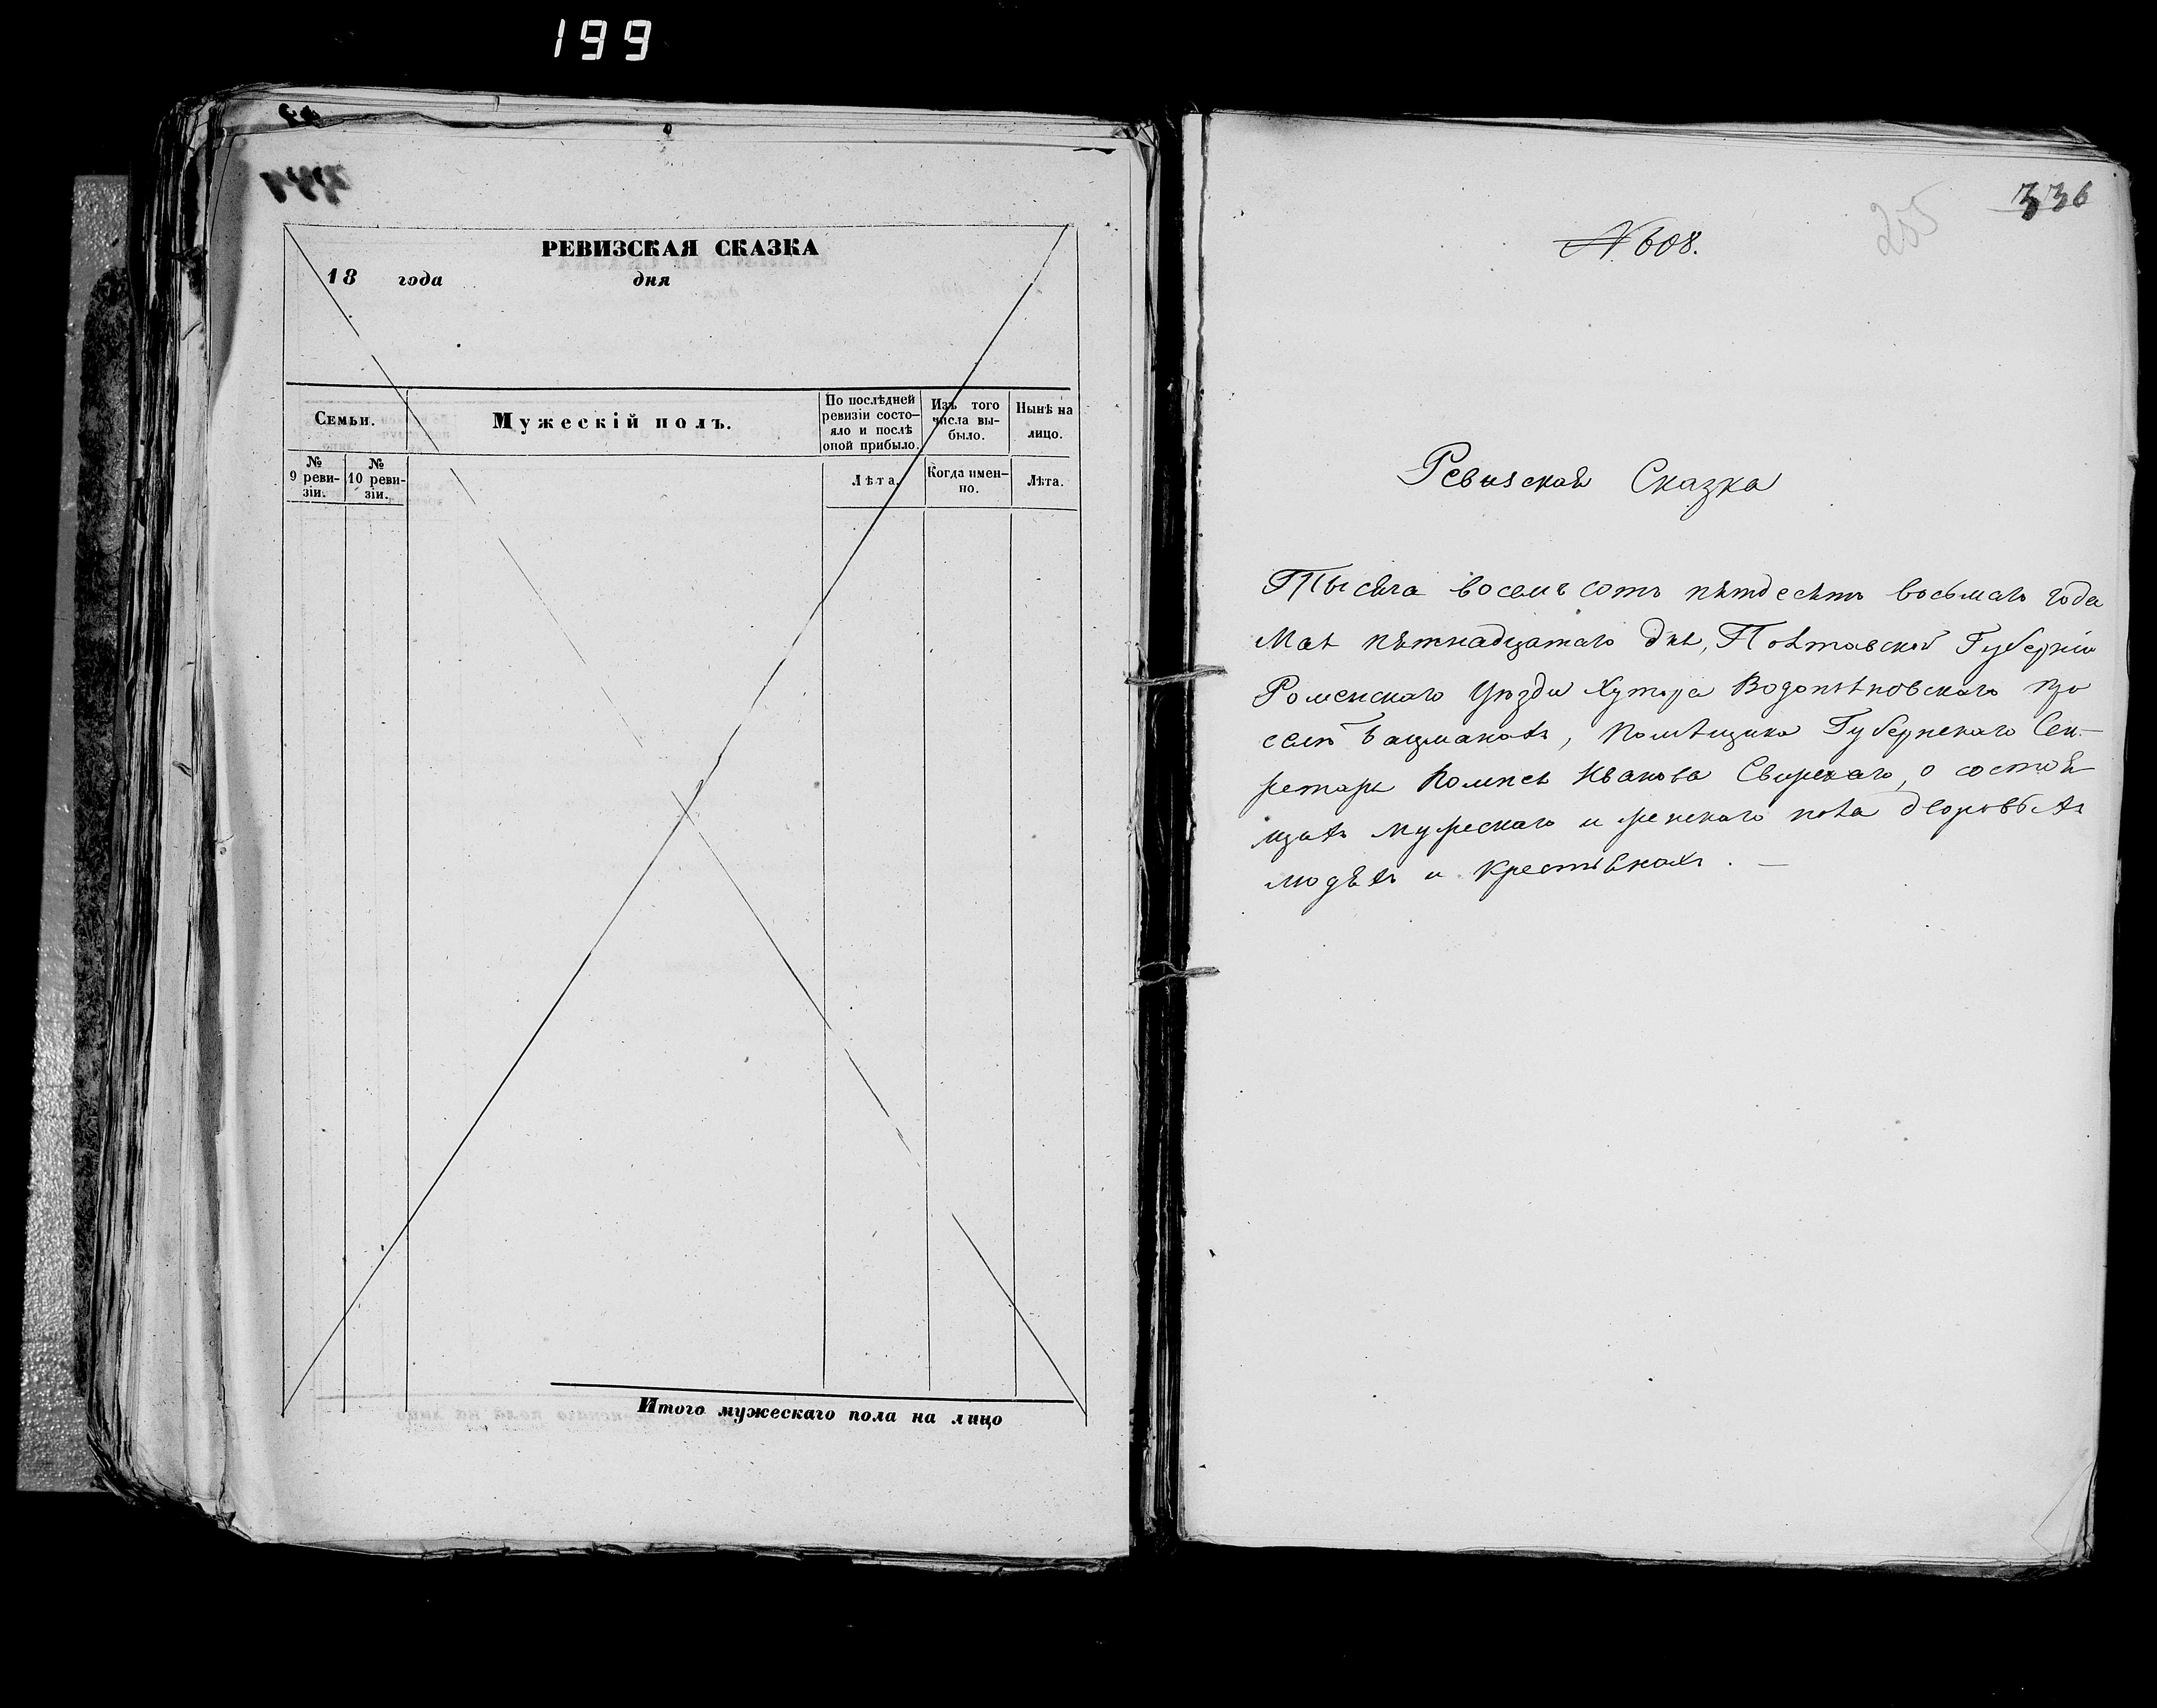 199
РЕВИЗСКАЯ СКАЗКА
18 года дня
Семьи.
Мужескій полъ.
По послѣдней ревизіи состо-
яло и послѣ оной прибыло.
Изъ того числа вы-
было.
Нынѣ на лицо.
№ 9 реви-
зіи.
№ 10 реви-
зіи.
Лѣта.
Когда имен-
но.
Лѣта.
Итого мужескаго пола на лицо
336
205
№ 608.
Ревизская Сказка
Тысяча восемь сотъ пятдесятъ восьмаго года
Мая пятнадцатаго дня, Полтавской Губерніи
Роменскаго Уѣзда Хутора Водопьяновскаго при
селѣ Башмакахъ, Помѣщика Губернскаго Сек-
ретаря Иванова Свирскаго, о состоя
щихъ мужескаго и женскаго пола дворовыхъ
людяхъ и крестьянахъ. —